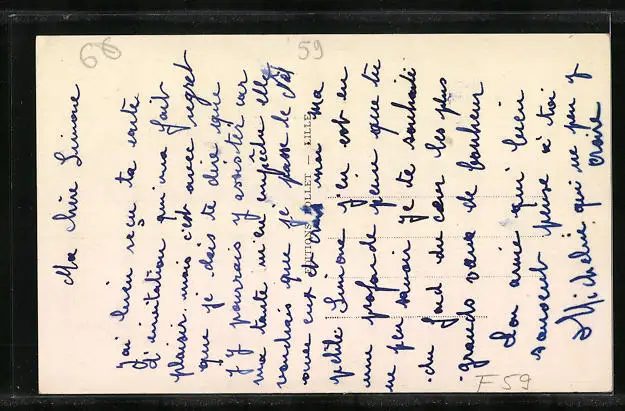 Ma chère Simone
J'ai bien reçu ta carte
d'invitation qui m'a fait
plaisir mais c'est avec regret
que je dois te dire que
j'y pourrais y assister car
ma tante m'en empêche elle
voudrais que je passe le
avec eux
petite Simone j'en est eu
une peine que tu
ne peu savoir je te souhaite
du fond du cœur les plus
grands vœux de bonheur
Ton amie qui bien
souvent pense à toi
Micheline qui ne peu y
croire
EDITIONS COLLET — LILLE
68
59
F59